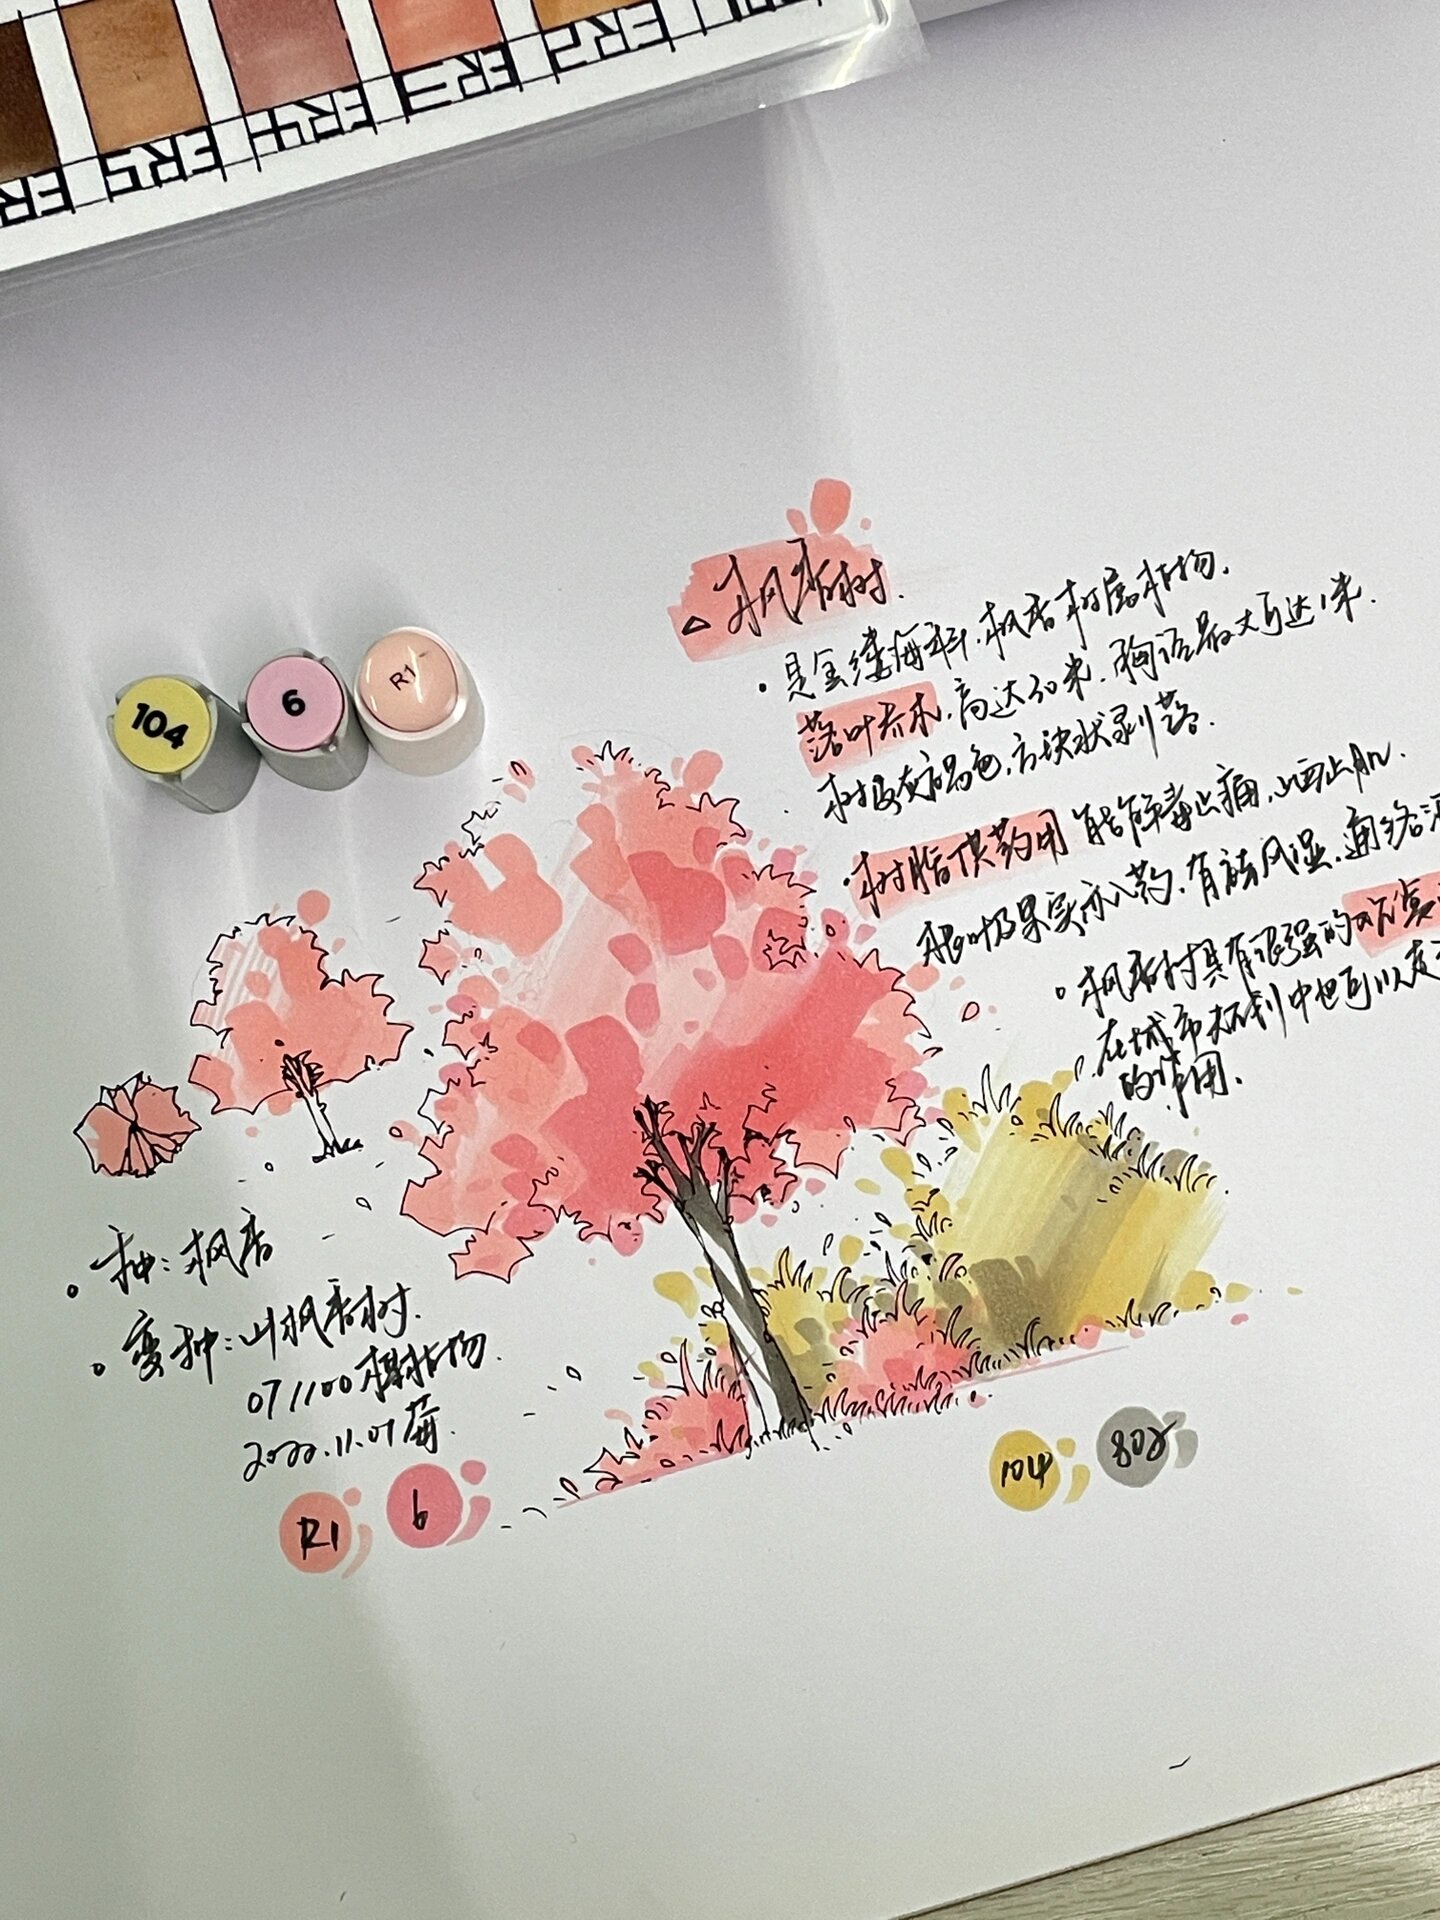 ER5
ER4
ER三
ER2
104
6
R1
△ 枫香树.
· 是金缕梅科.枫香树属植物.
落叶乔木,高达30米.胸径最大可达1米.
树皮灰褐色,方块状剥落.
·树脂供药用 能解毒止痛,止血生肌.
根叶及果实亦入药.有祛风湿.通络活
· 枫香树具有很强的
在城市规划中也可以起
的作用.
· 种:枫香
· 变种:山枫香树.
071100 植物.
2022.11.07
R1
6
104
802